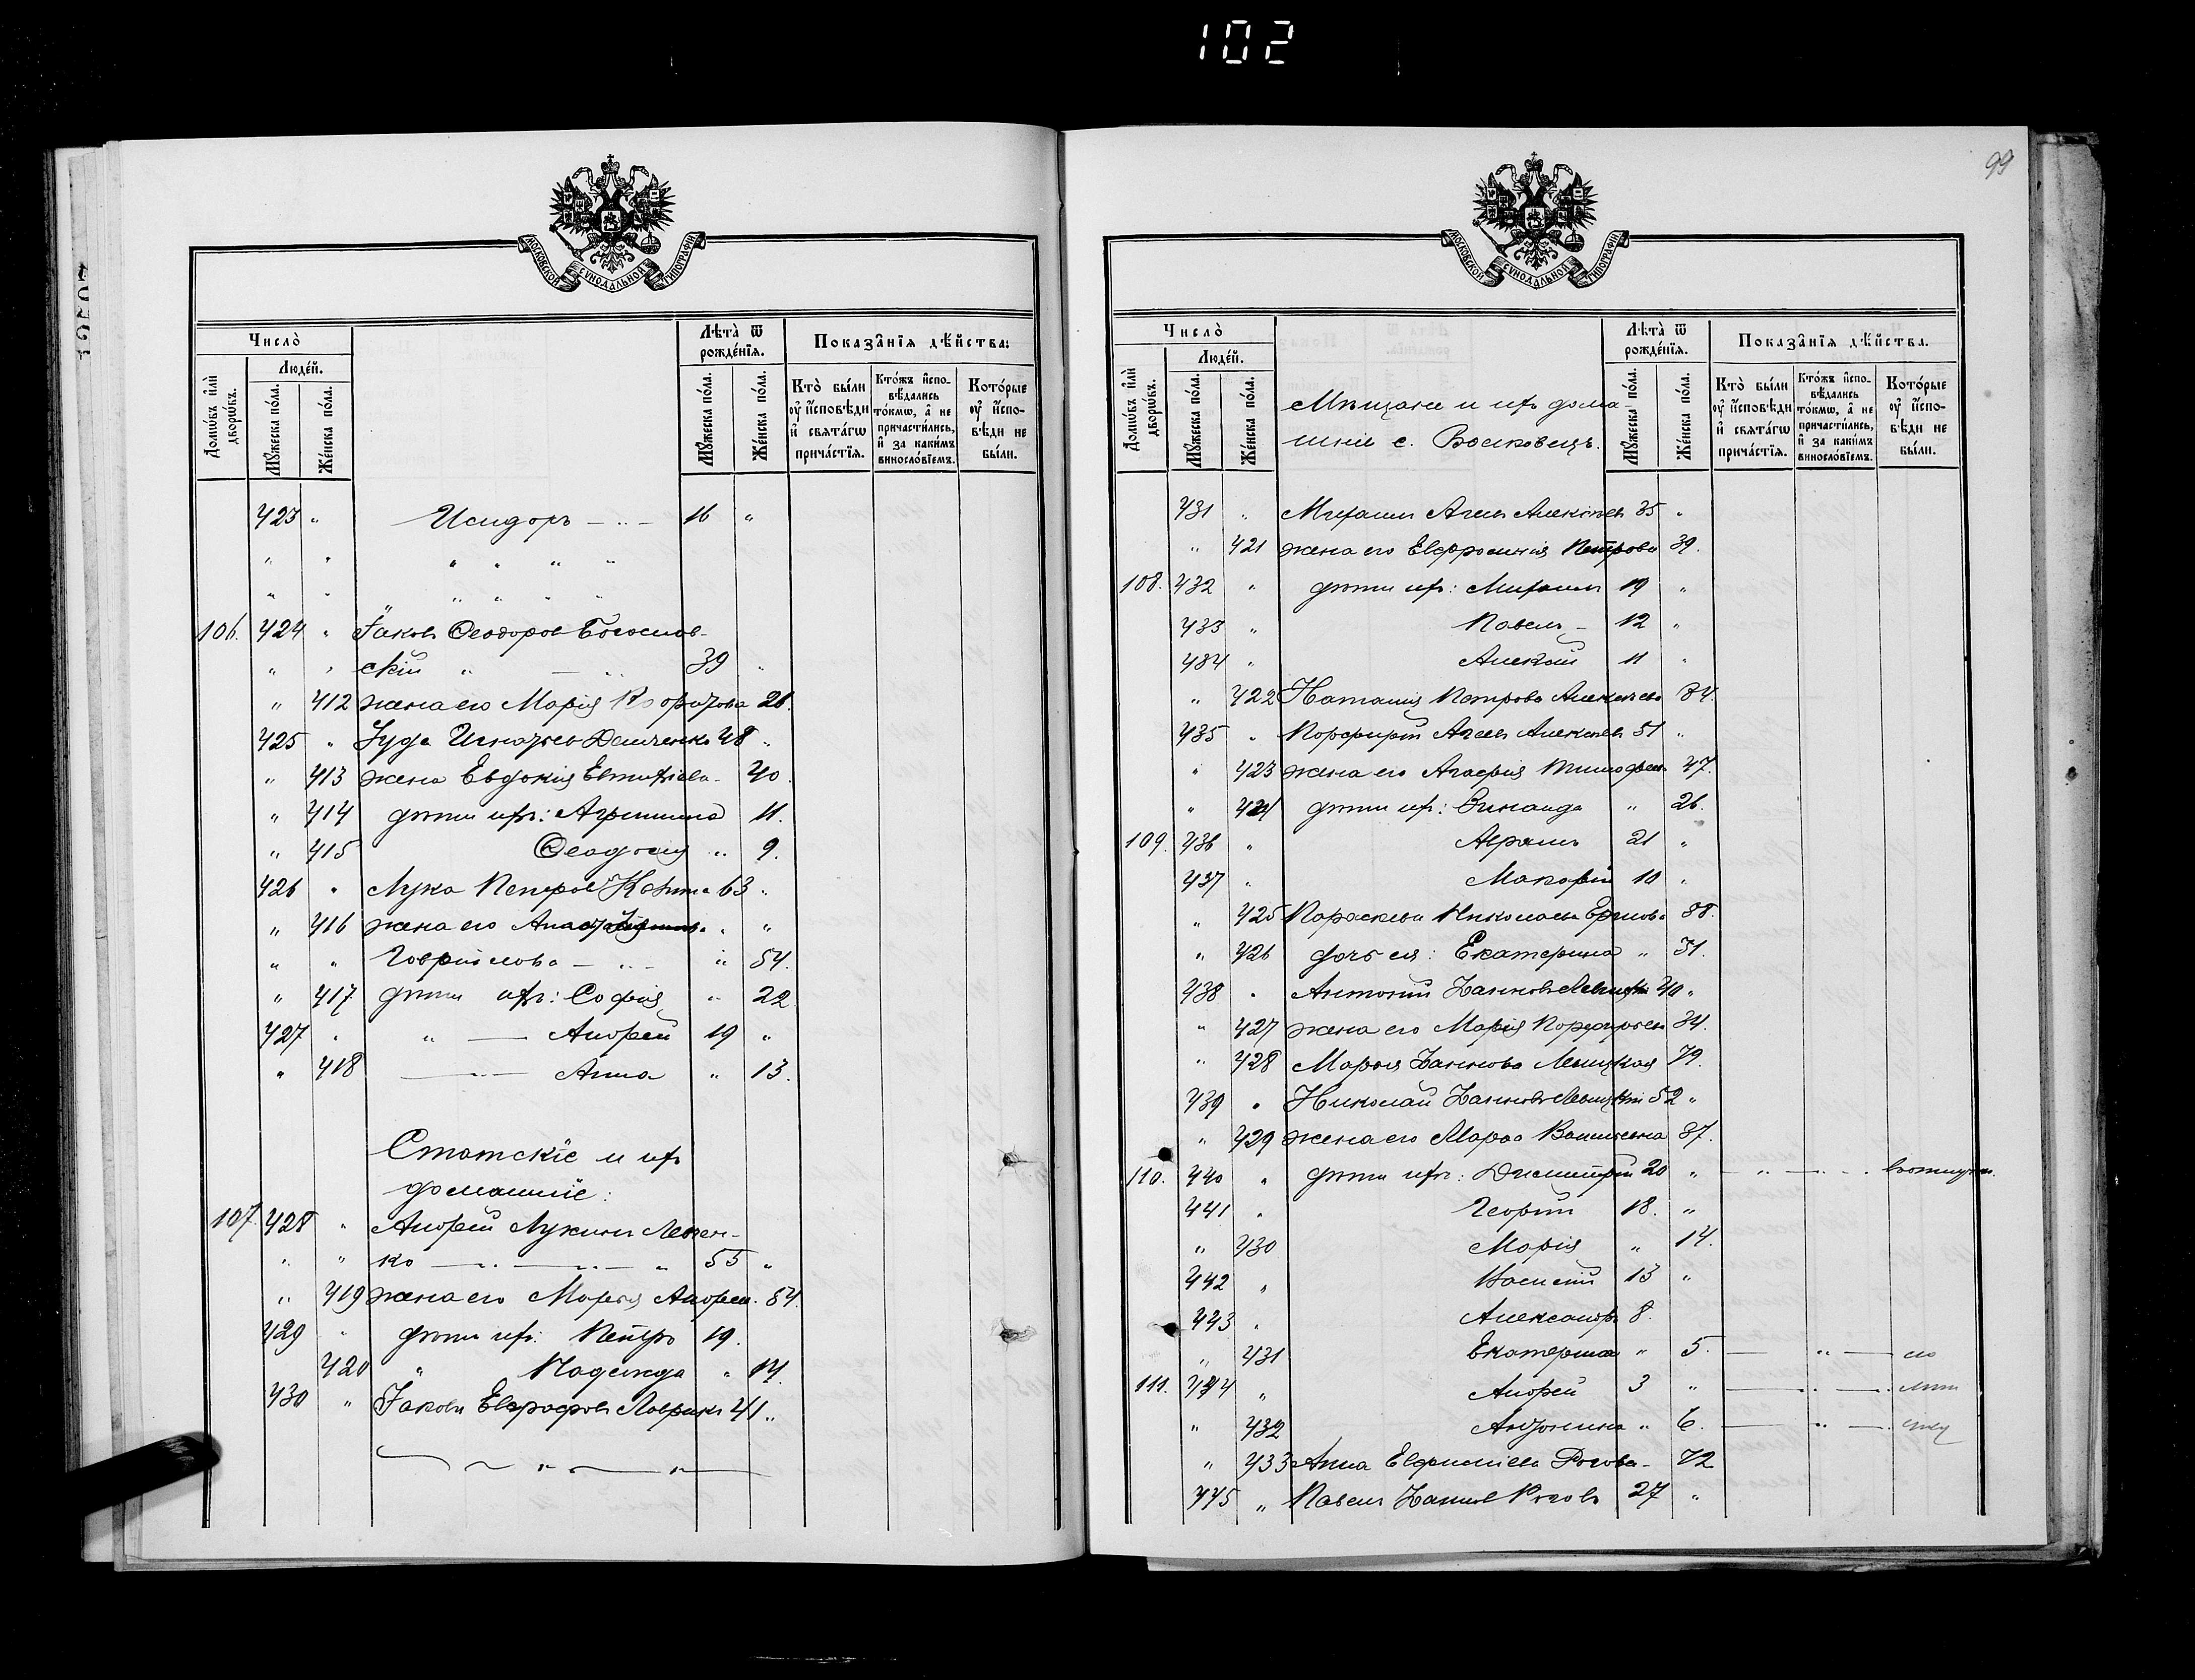 102
МОСКОВСКОЙ СУНОДАЛЬНОЙ ТИПОГРАФІИ
Число̀
Людéй.
Домѡ́въ и҆лѝ дворѡ́въ.
Мꙋ́жеска по́ла.
Же́нска по́ла.
Лѣта̀ ѿ рожде́нїѧ.
Мꙋ́жеска по́ла.
Же́нска по́ла.
Показа̑нїѧ дѣ́йства:
Кто̀ бы́ли ᲂу҆ и҆́сповѣди и҆ свѧта́гѡ прича́стїѧ.
Кто́жъ и҆спо-вѣдались то́кмѡ, а҆ не причасти́лись, и҆ за каки́мъ винослѡ́вїемъ.
Кото́рые ᲂу҆ и҆́спо-вѣди не бы́ли.
423 " Исидоръ — 16 "
106. 424 " Іаковъ Ѳеодоровъ Богослов-
скій " — 39 "
" 412 жена его Марія 26.
425 " Іуда Игнатьев Демченко 48 "
" 413 жена Евдокія Евтихіева 40.
" 414 дѣти ихъ: Агрипина 11.
" 415 Ѳеодосія " 9.
426 " Лука Петров 63 "
" 416 жена его " "
" " Гавриилова — " 54.
" 417 дѣти ихъ: Софія " 22
427 " " — Андрей 19 "
" 418 — Анна " 13.
Статскіе и ихъ
домашніе:
107 428 " Андрей Лукинъ Левчен-
" " ко — " 55 "
" 419 жена его Марья Андреев. 54.
429 " дѣти ихъ: Петръ 19.
420 " Надежда " 14.
430 " Іаковъ Евграфовъ 41 "
99
МОСКОВСКОЙ СУНОДАЛЬНОЙ ТИПОГРАФІИ
Число̀
Людéй.
Домѡ́въ и҆лѝ дворѡ́въ.
Мꙋ́жеска по́ла.
Же́нска по́ла.
Мѣщане и ихъ дома-
шніе с. Волковецъ.
Лѣта̀ ѿ рожде́нїѧ.
Мꙋ́жеска по́ла.
Же́нска по́ла.
Показа̑нїѧ дѣ́йства.
Кто̀ бы́ли ᲂу҆ и҆́сповѣди и҆ свѧта́гѡ прича́стїѧ.
Кто́жъ и҆спо-вѣдались то́кмѡ, а҆ не причасти́лись, и҆ за каки́мъ винослѡ́вїемъ.
Кото́рые ᲂу҆ и҆́спо-вѣди не бы́ли.
431 " Михаилъ Агеевъ Алексѣев 35 "
" 421 жена его Евфросинія Петрова 39.
108. 432 " дѣти ихъ: Михаилъ 19 "
433 " Павелъ — 12 "
434 " Алексій 11 "
" 422 Наталія Петрова Алексѣева 34.
435 " Порфирій Агеев Алексѣев 51 "
" 423 жена его Агафія Тимофеев. 47.
" 424 дѣти ихъ: Зинаида " 26.
109. 436 " Авраамъ 21 "
437 " Макарій 10 "
" 425 Параскева Николаева 38.
" 426 дочь ея: Екатерина " 31.
438 " Антоній Іаннов Левицкій 40 "
" 427 жена его Марія Порфирьев 34.
" 428 Марья Іаннова Левицкая 79.
439 " Николай Іаннов Левицкій 52 "
" 429 жена его Марѳа Васильевна 37.
110. 440 " дѣти ихъ: Димитрій 20 "
441 " Георгій 18. "
" 430 Марія " 14.
442 " Василій 13 "
443 " Александръ 8.
" 431 Екатерина " 5. — " — по
111. 444 " Андрей 3 " — " —
" 432 Антонина " 6. — " —
" 433 Анна Евфиміева Рогова — 72
445 " Павелъ Іаннов Рогов 27 "